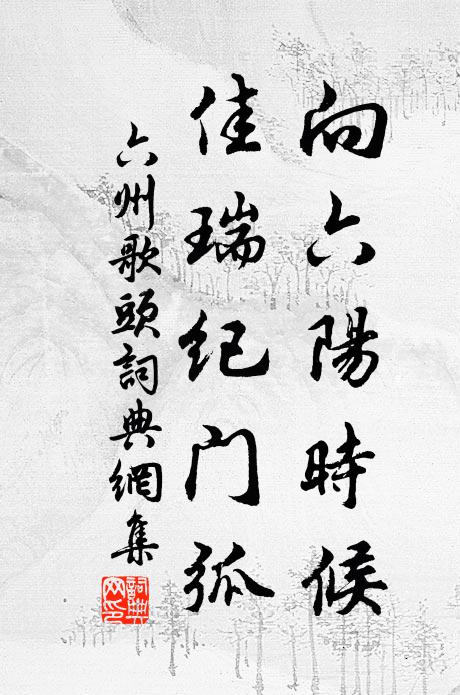 向六陽時候
佳瑞纪门弧
六州歌頭詞典網集
詞典网印